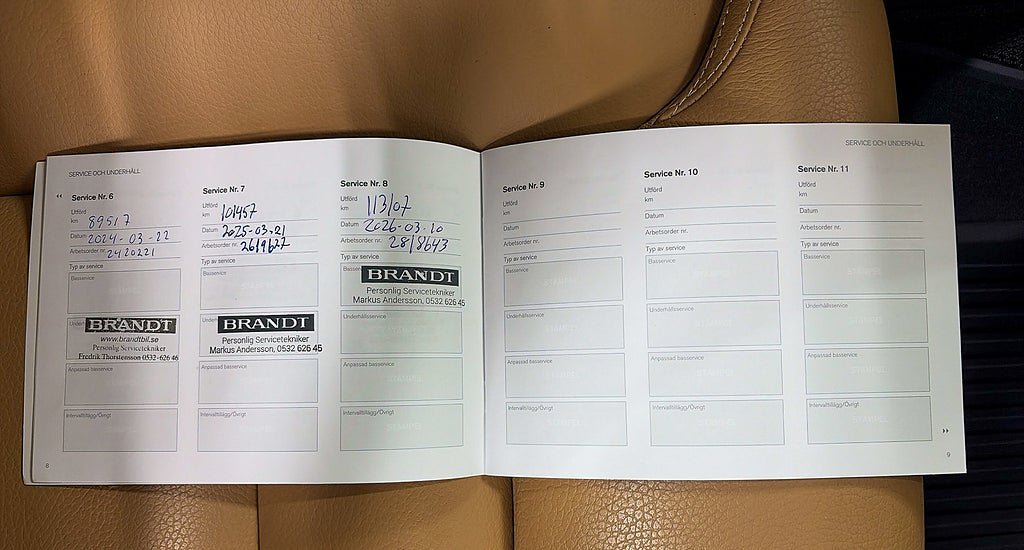 SERVICE OCH UNDERHÅLL
Service Nr. 6
Utförd
km 89517
Datum 2024-03-22
Arbetsorder nr. 2420221
Typ av service
Basservice
BRANDT
www.brandtbil.se
Personlig Servicetekniker
Fredrik Thorstensson 0532-626 46
Anpassad basservice
Intervalltillägg/Övrigt
8
Service Nr. 7
Utförd
km 101457
Datum 2025-03-21
Arbetsorder nr. 2619627
Typ av service
Basservice
BRANDT
Personlig Servicetekniker
Markus Andersson, 0532 626 45
Anpassad basservice
Intervalltillägg/Övrigt
Service Nr. 8
Utförd
km 113107
Datum 2026-03-10
Arbetsorder nr. 2818643
Typ av service
BRANDT
Personlig Servicetekniker
Markus Andersson, 0532 626 45
Underhållsservice
Anpassad basservice
Intervalltillägg/Övrigt
STÄMPEL
SERVICE OCH UNDERHÅLL
Service Nr. 9
Utförd
km
Datum
Arbetsorder nr.
Typ av service
Basservice
STÄMPEL
Underhållsservice
STÄMPEL
Anpassad basservice
STÄMPEL
Intervalltillägg/Övrigt
STÄMPEL
Service Nr. 10
Utförd
km
Datum
Arbetsorder nr.
Typ av service
Basservice
STÄMPEL
Underhållsservice
STÄMPEL
Anpassad basservice
STÄMPEL
Intervalltillägg/Övrigt
STÄMPEL
Service Nr. 11
Utförd
km
Datum
Arbetsorder nr.
Typ av service
Basservice
STÄMPEL
Underhållsservice
STÄMPEL
Anpassad basservice
STÄMPEL
Intervalltillägg/Övrigt
STÄMPEL
9